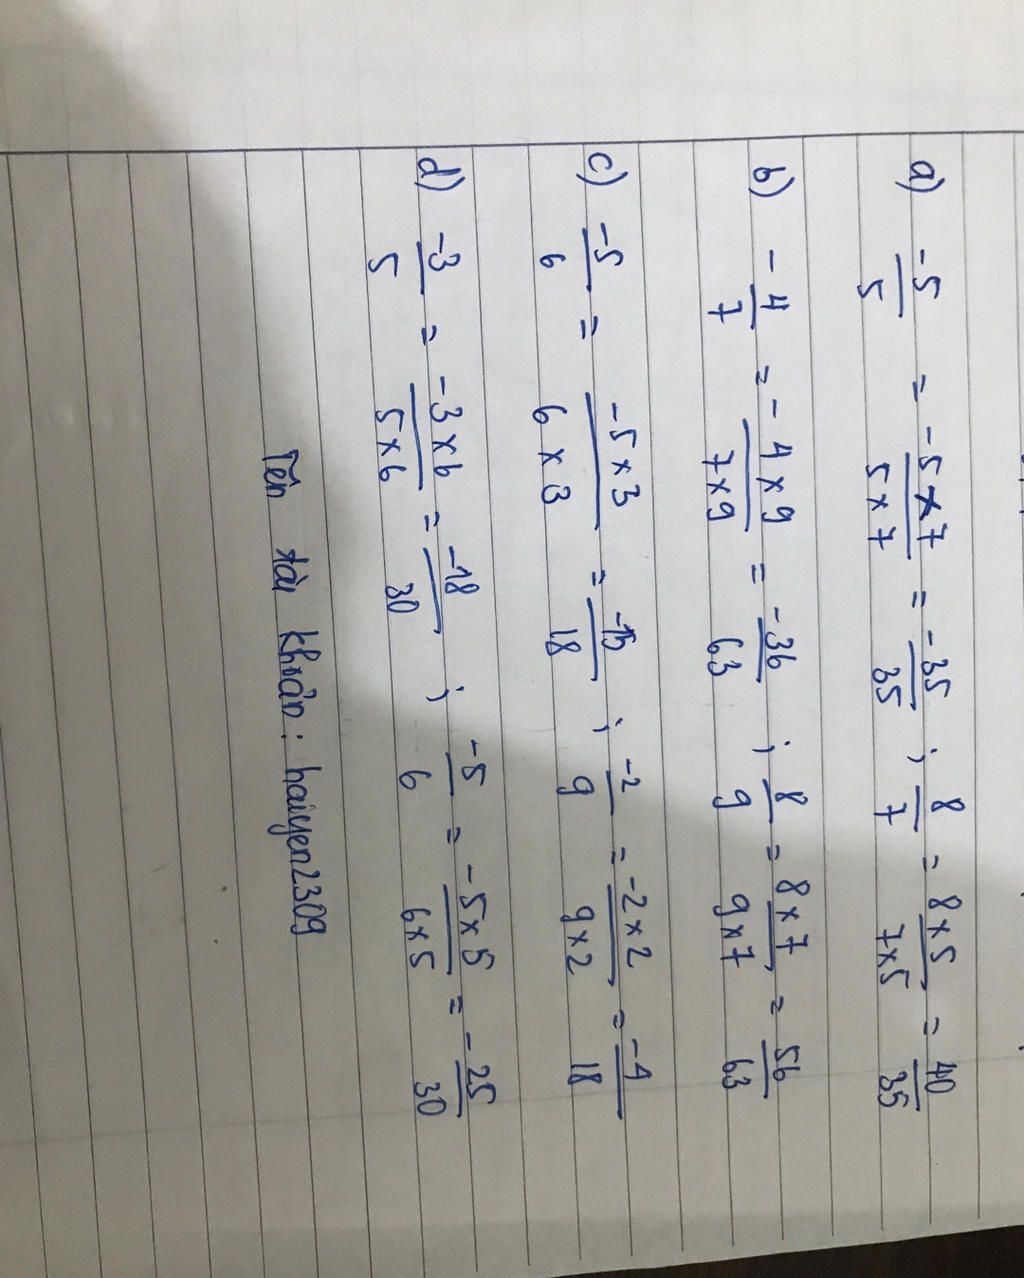 a) -5/5 = -5×7/5×7 = -35/35 ; 8/7 = 8×5/7×5 = 40/35
b) -4/7 = -4×9/7×9 = -36/63 ; 8/9 = 8×7/9×7 = 56/63
c) -5/6 = -5×3/6×3 = -15/18 ; -2/9 = -2×2/9×2 = -4/18
d) -3/5 = -3×6/5×6 = -18/30 ; -5/6 = -5×5/6×5 = -25/30
Tên tài khoản : haiyen2309